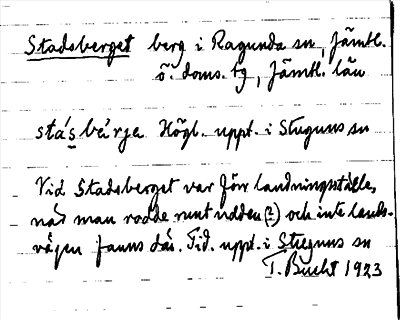 Stadsberget berg i Ragunda sn, Jämtl.
ö. doms. tg, Jämtl. län
stásbärje Högl. uppt. i Stuguns sn
Vid Stadsberget var förr landningsställe,
när man rodde runt udden (?) och inte lands-
vägen fanns där. Tid. uppt. i Stuguns sn
T. Bucht 1923